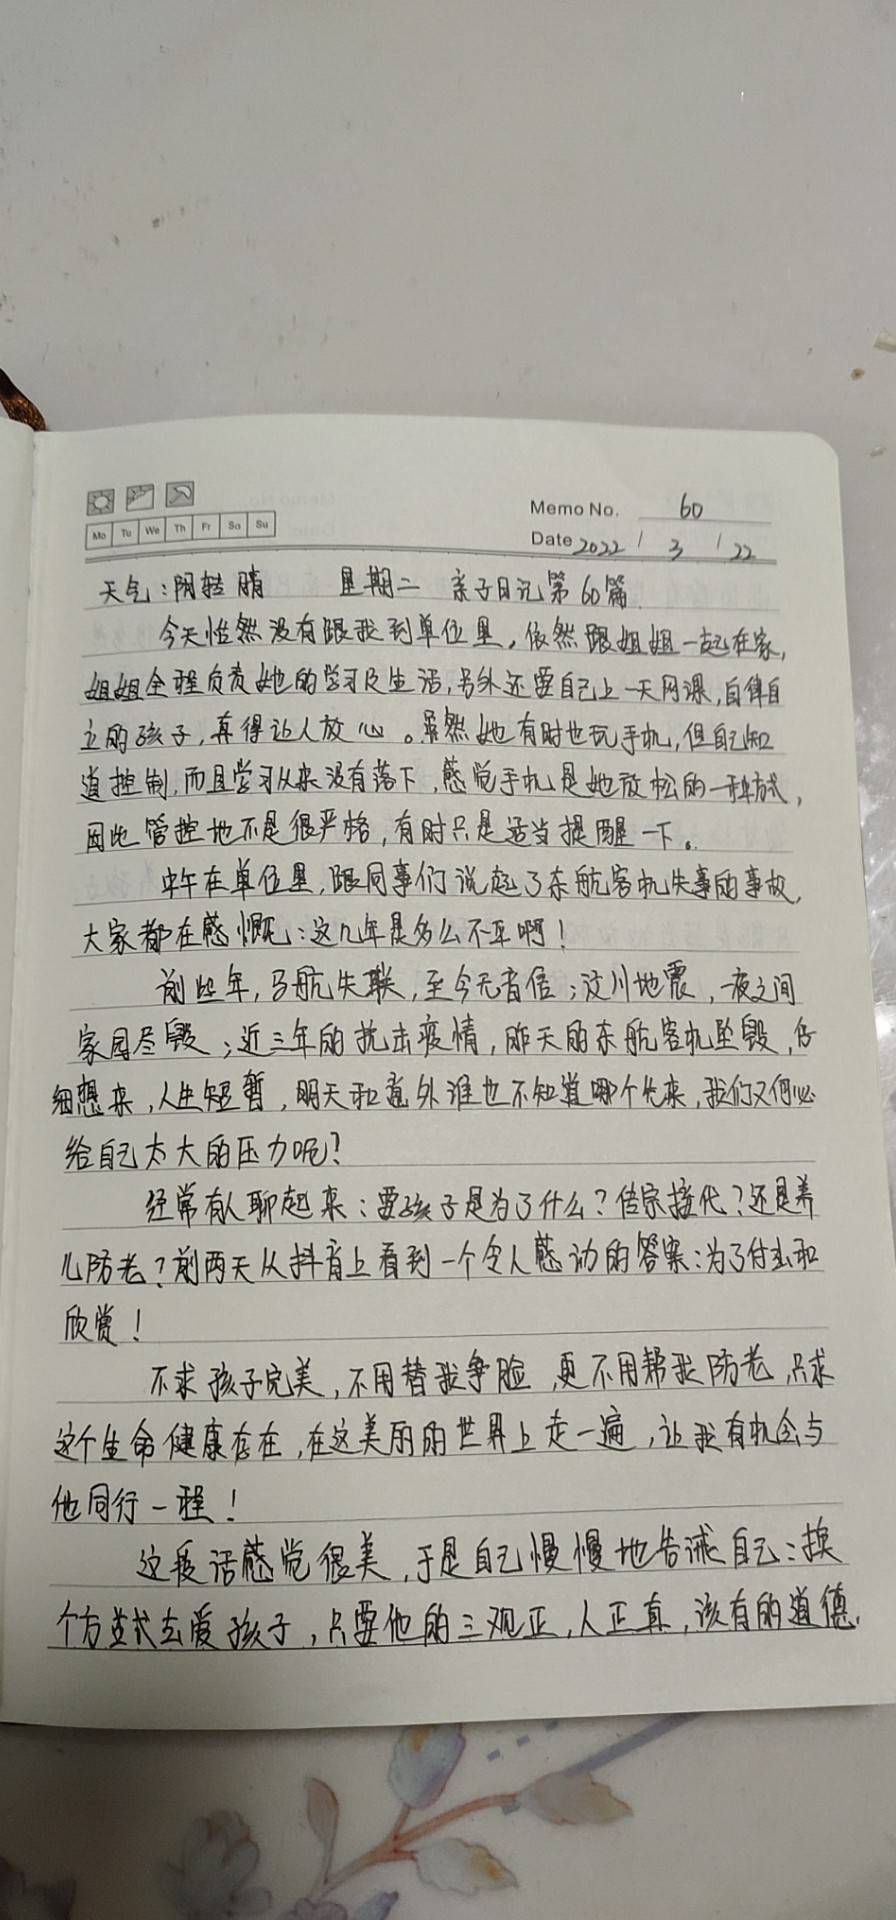 Memo No. 60
Mo Tu We Th Fr Sa Su
Date 2022 / 3 / 22
天气：阴转晴 星期二 亲子日记第60篇
今天怡然没有跟我到单位里，依然跟姐姐一起在家，
姐姐全程负责她的学习及生活，另外还要自己上一天网课，自律自
立的孩子，真得让人放心。虽然她有时也玩手机，但自己知
道控制，而且学习从来没有落下，感觉手机是她放松的一种方式，
因此管控地不是很严格，有时只是适当提醒一下。
中午在单位里，跟同事们说起了东航客机失事的事故，
大家都在感慨：这几年是多么不平啊！
前些年，马航失联，至今无音信；汶川地震，一夜之间
家园尽毁；近三年的抗击疫情，昨天的东航客机坠毁，仔
细想来，人生短暂，明天和意外谁也不知道哪个先来，我们又何必
给自己太大的压力呢？
经常有人聊起来：要孩子是为了什么？传宗接代？还是养
儿防老？前两天从抖音上看到一个令人感动的答案：为了付出和
欣赏！
不求孩子完美，不用替我争脸，更不用帮我防老，只求
这个生命健康存在，在这美丽的世界上走一遍，让我有机会与
他同行一程！
这段话感觉很美，于是自己慢慢地告诫自己：换
个方式去爱孩子，只要他的三观正，人正真，该有的道德，